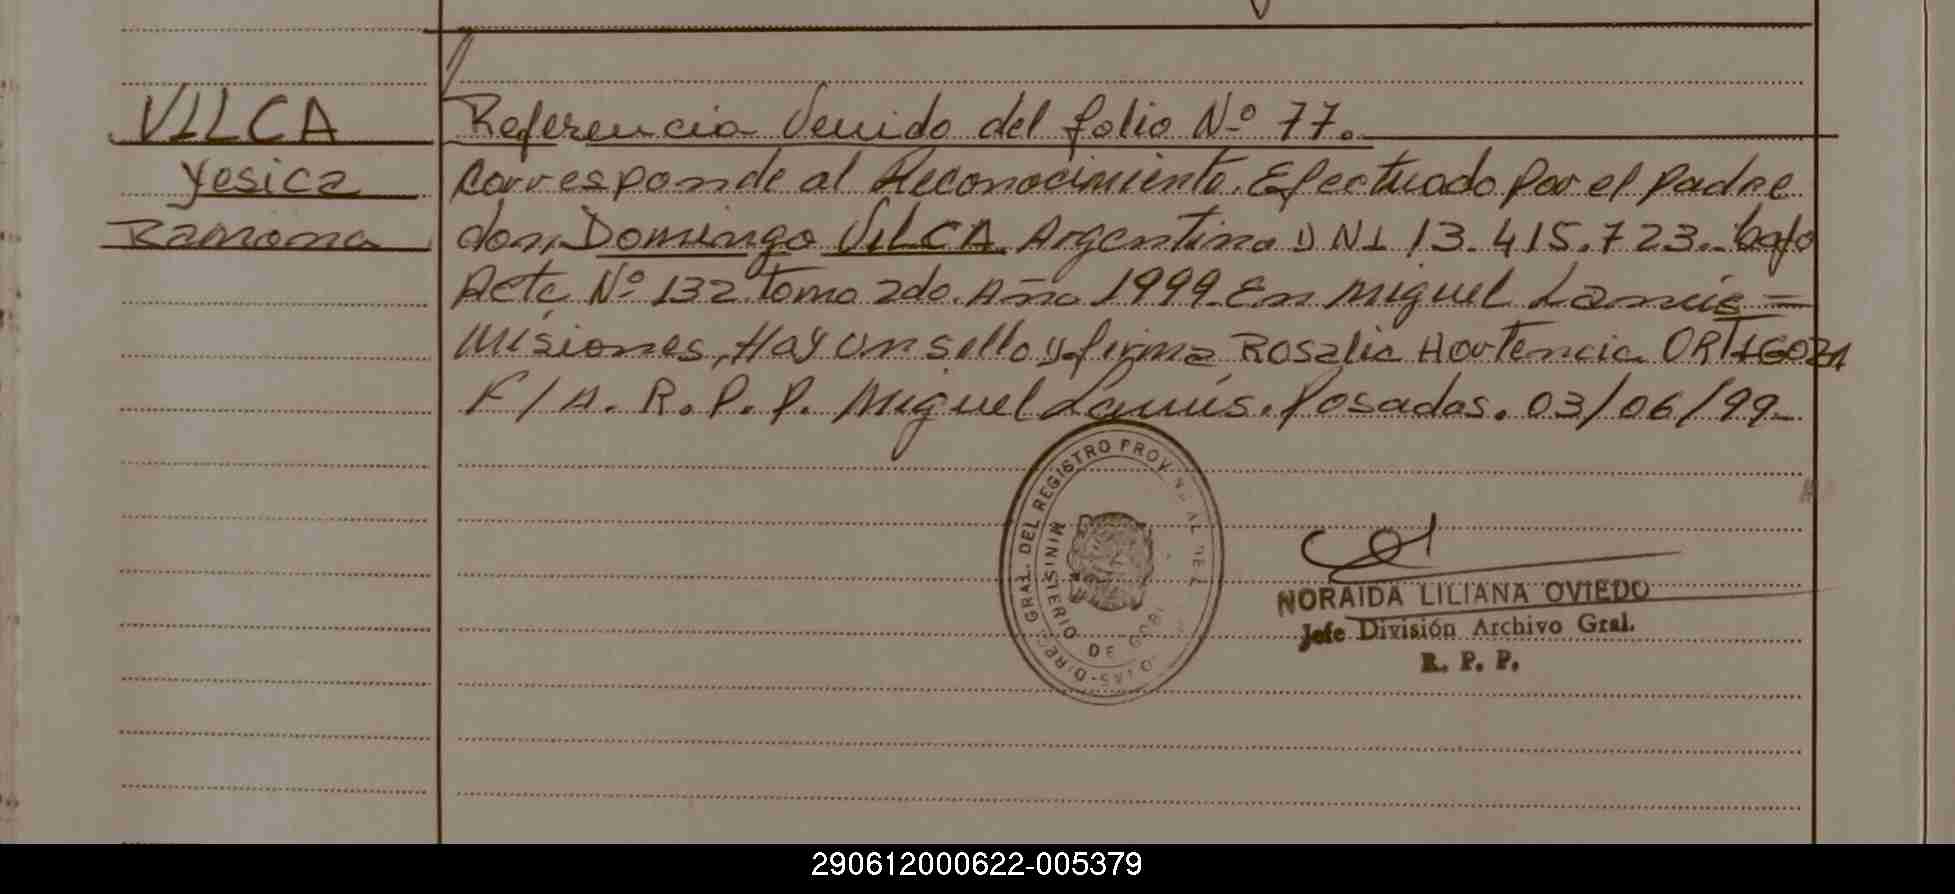 VILCA
Yesica
Ramona
Referencia Venido del folio Nº 77.
corresponde al Reconocimiento. Efectuado por el padre
don, Domingo VILCA Argentino DNI 13.415.723. bajo
Acta Nº 132 tomo 2do. Año 1999. En Miguel Lanús =
Misiones, Hay un sello y firma Rosalia Hortencia ORTIGOZA
F/A. R.P.P. Miguel Lanús. Posadas. 03/06/99
GRAL. DEL REGISTRO PROVINCIAL DE
MINISTERIO DE GOBI
NORAIDA LILIANA OVIEDO
Jefe División Archivo Gral.
R. P. P.
290612000622-005379